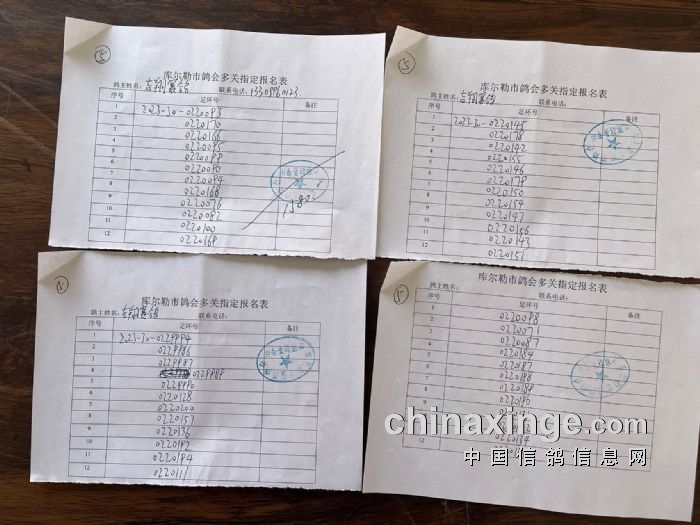 ⑤
库尔勒市鸽会多关指定报名表
鸽主姓名: 吉翔赛鸽 联系电话:
序号 足环号 备注
1 2023-30-0220083
2 0220170
3 0220166
4 0220095
5 0220099
6 0220080
7 0220094
8 0220168
9 0220076
10 0220082
11 0220100
12 0220169
⑤
库尔勒市鸽会多关指定报名表
鸽主姓名: 吉翔赛鸽 联系电话:
序号 足环号 备注
1 2023-30-0220145
2 0220178
3 0220142
4 0220155
5 0220146
6 0220179
7 0220150
8 0220154
9 0220147
10 0220156
11 0220143
12 0220151
库尔勒市鸽会多关指定报名表
鸽主姓名: 吉翔赛鸽 联系电话:
序号 足环号 备注
1 2023-30-0229994
2 0229986
3 0229987
4 0229989
5 0229990
6 0220128
7 0220200
8 0220157
9 0220136
10 0220187
11 0220184
12 0220111
⑤
库尔勒市鸽会多关指定报名表
鸽主姓名: 联系电话:
序号 足环号 备注
1 0220098
2 0220071
3 0220087
4 0220184
5 0220187
6 0220186
7 0220188
12
chinaxinge.com
中国信鸽信息网